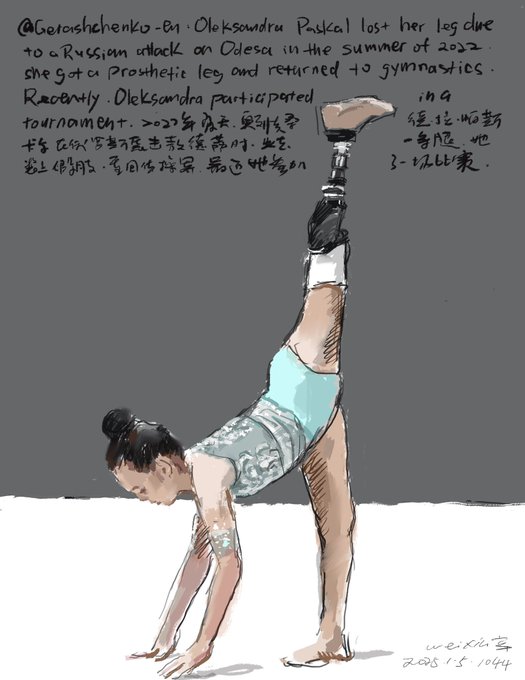 @Gerashchenko-en. Oleksandra Paskal lost her leg due
to a Russian attack on Odesa in the summer of 2022.
she got a prosthetic leg and returned to gymnastics.
Recently. Oleksandra participated in a
tournament. 2022年夏天. 德拉·帕斯
卡尔在俄罗斯袭击敖德萨时. 腿. 她
假肢. 重回体操界. 最近她参加了一场比赛.
weixin
2025.1.5.1044